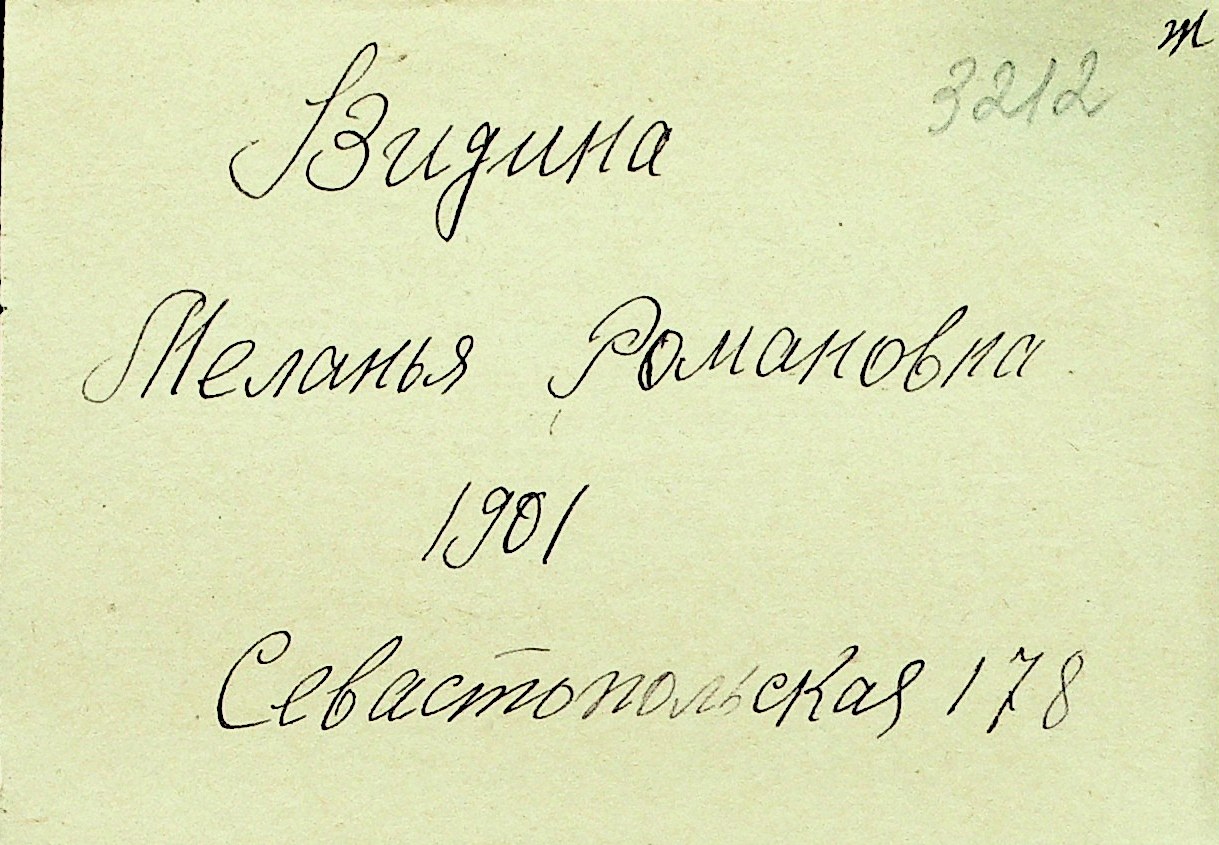 ж
3212
Видина
Меланья Романовна
1901
Севастопольская 178